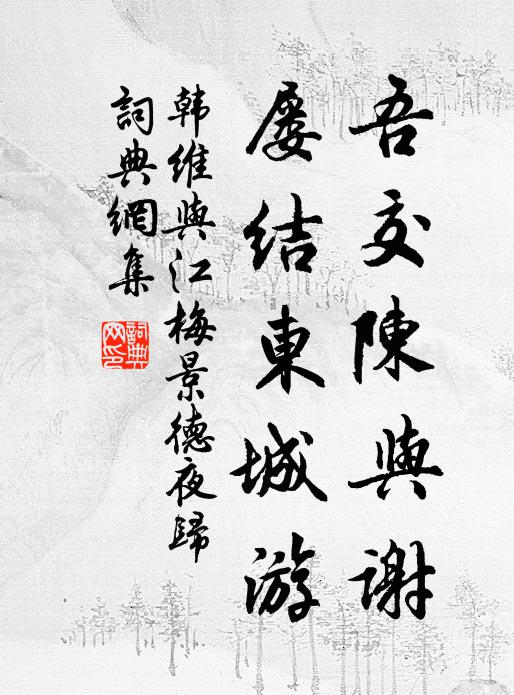 吾交陳與謝
屡結東城游
韩維與江梅景德夜歸
詞典網集
詞典網印